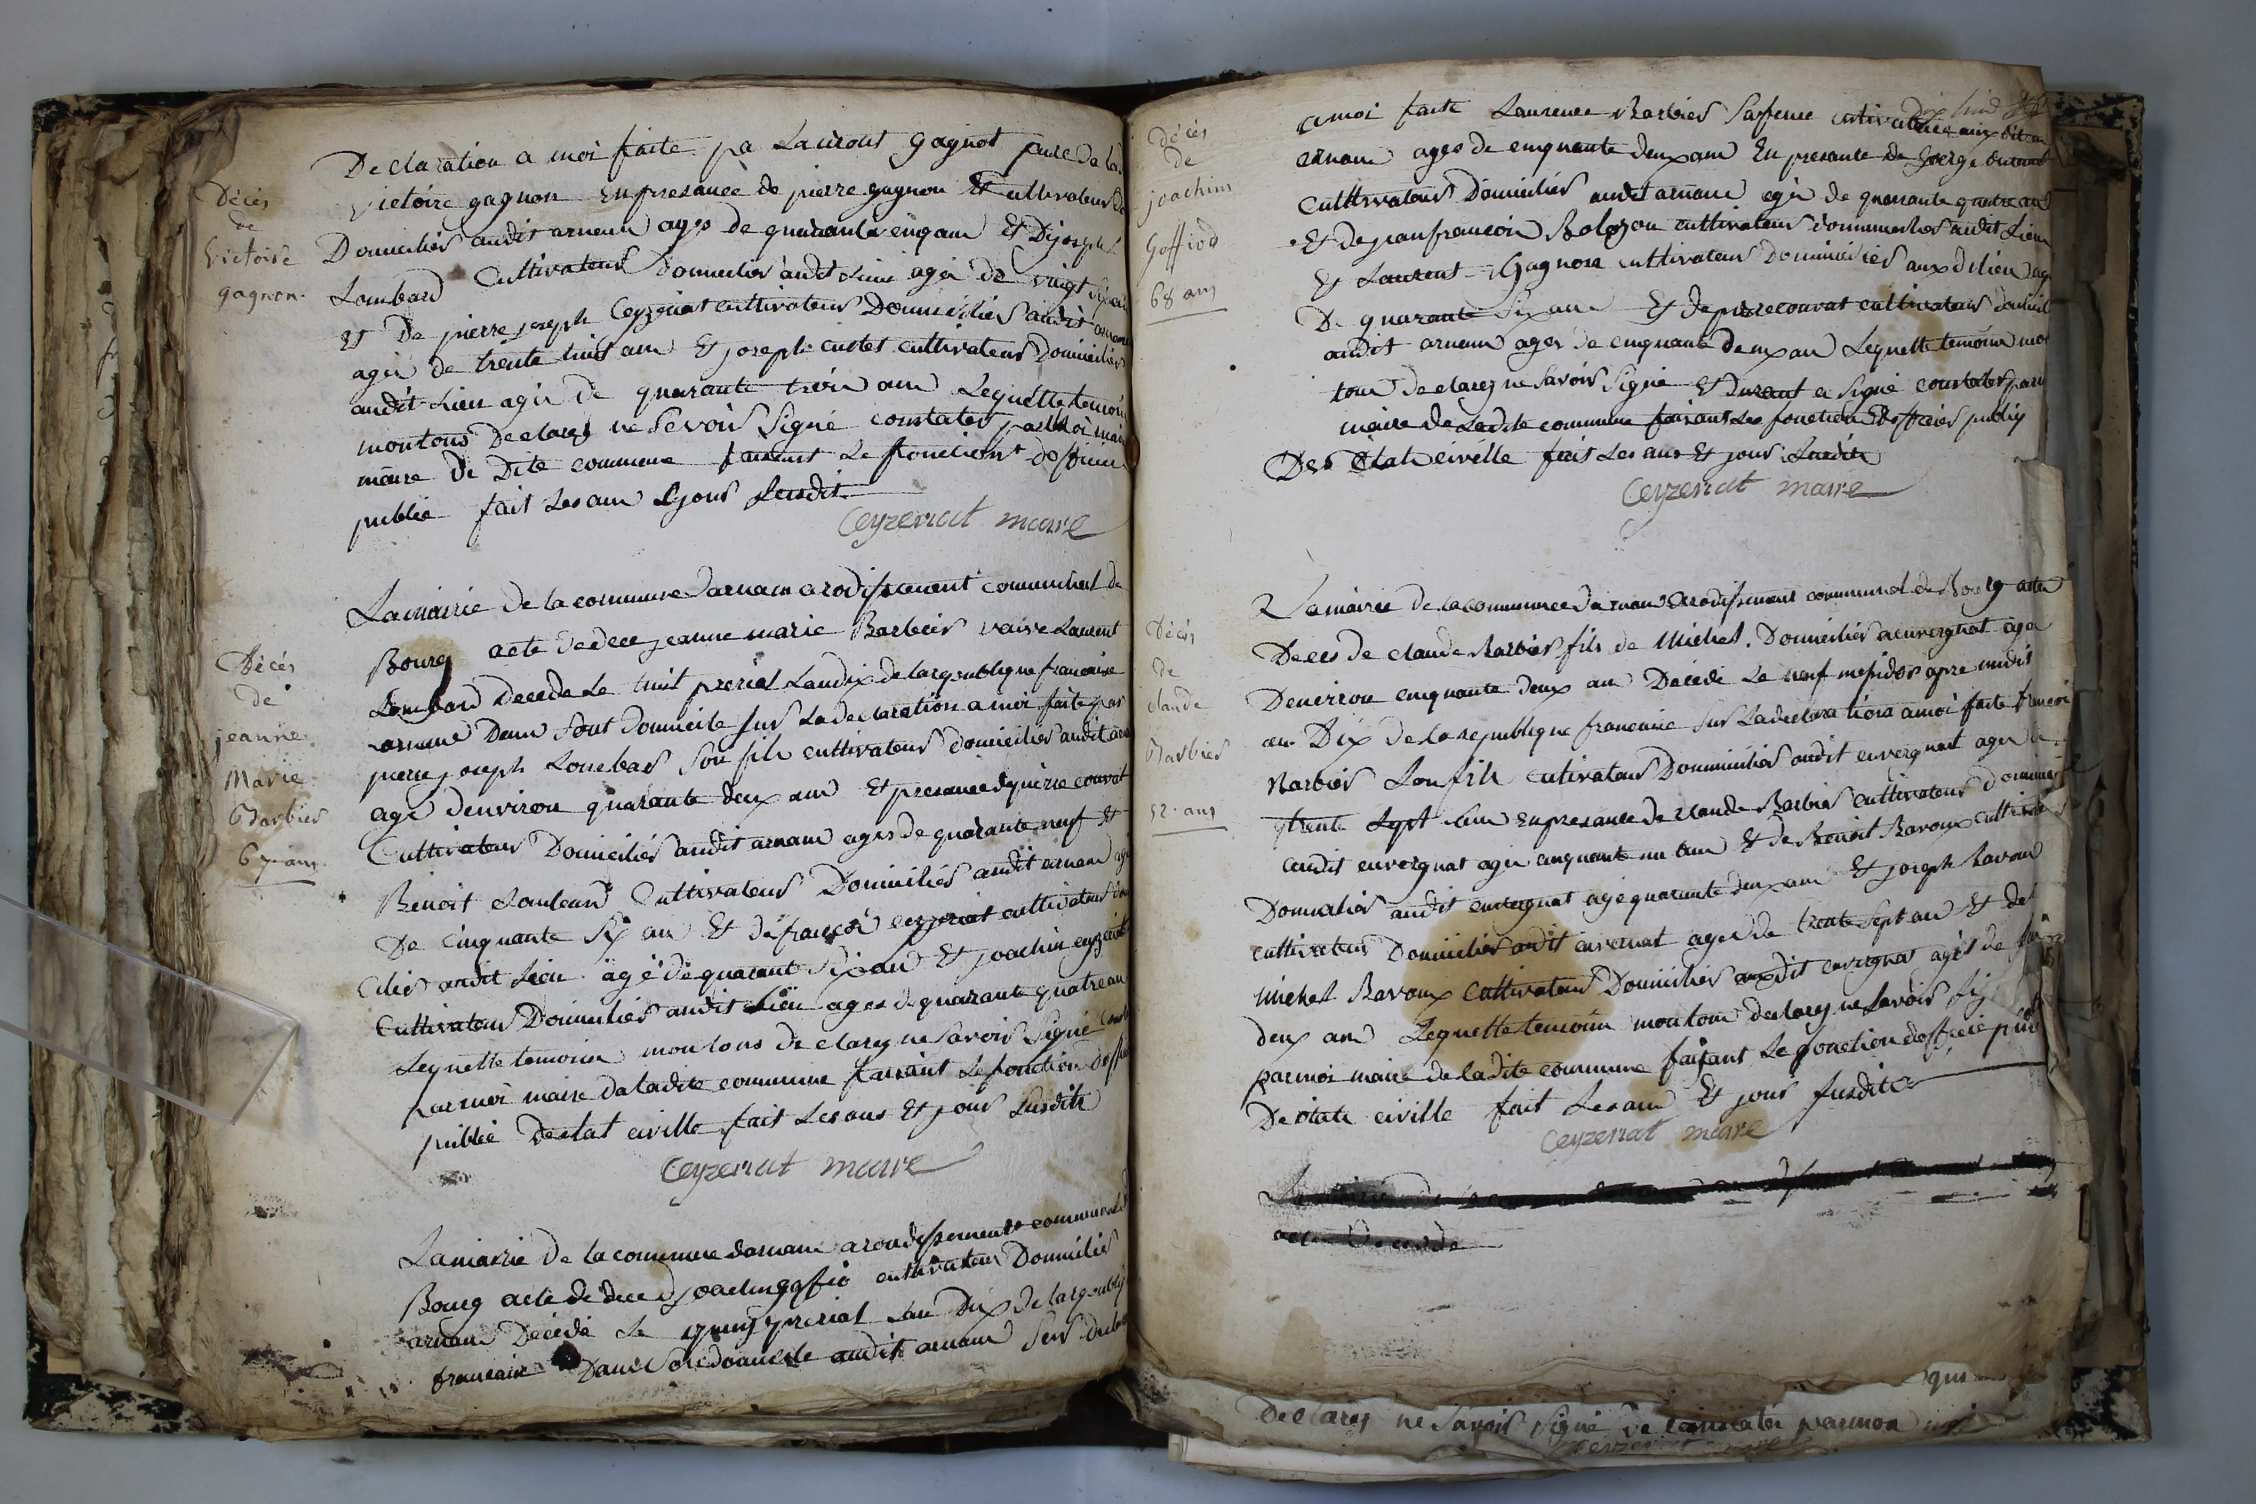 Décès
de
Victoire
gagnon.
Declaration a moi faite pa Laurent gagnot pere de la
victoire gagnon en presance de pierre gagnon Et cultivateur
Domicilier audit arnam ages de quarante cinq ans Et De joseph
Lombard Cultivateur domicilier audit Lieu agér de vingt
Et De pierre joseph Ceyzeriat cultivateur Domicilier audit arnam
ager de trente huit ans Et joseph cultivateur domicilier
audit Lieu agér de quarante trois ans Lequelle temoin
montous declarez ne Sevoir Signé constater par moi
maire De Dite commune faisant Le fonction
publié fait Les ans Et jour Susdit
Ceyzeriat maire
Décés
de
jeanne
Marie
Barbier
67 ans
Lamairie de la commune darnam arodissement communal de
Bourg acte de dece jeanne marie Barbier vaive Laurent
Lombard decede Le huit prerial Landix de la republique francaise
arnam Dans Sont Domicile Sur La declaration a moi faite par
pierre joseph Lombar Son fils cultivateur domicilier audit
age denviron quarante deux ans Et presance de pierre couvat
Cultivateur Domicilier audit arnam ager de quarante neuf Et
Benoit Cultivateur Domicilier audit arnam
De cinquante Six ans Et de françoi ceyzeriat cultivateur
cilier audit Lieu agé de quarant Six ans Et joachin ceyzeriat
Cultivateur Domicilier audit Lieu ages de quarante quatre ans
Lequelle temoin montous declarez ne Savoir Signé
par moi maire de ladite commune faisant Le fonction
publié de etat civille fait Les ans Et jour Susdit
Ceyzeriat maire
Lamairie De la commune darnam arondissement communal
Bourg acte de dece de joachin goffio cultivateur Domicilier
arnam Décédé Le prerial Lan Dix de la republi
francaise Dans audit arnam Sur
Décés
de
joachim
Goffiod
68 ans
a moi faite Laurence Barbier Safeme
arnam ages de cinquante deux ans En presante de George
Cultivateur Domicilier audit arnam agér de quarante quatre ans
Et de jean françoir Bolozon cultivateur domicilier audit Lieu
Et Laurent Gagnon cultivateur Domicilier
De quarante Six ans Et de pierre couvat cultivateur
audit arnam ager de cinquante deux ans Lequelle temoin
tous declarez ne Savoir Signé Et a Signé constater
maire de Ladite commune faisant Les fonction publiq
De Etat civille fait Les ans Et jour Susdit
Ceyzeriat maire
Décés
de
claude
Barbier
52 ans
La mairie de la commune darnam arrodissement communal de Bourg acte
Deces de claude Barbier fils de Michel Domicilier a envergnat ager
Denviron cinquante deux ans Décédé Le neuf mesidor apre midit
an Dix de la republique francaise Sur La declaration a moi faite francoi
Barbier Son fils cultivateur Domicilier audit envergnat ager de
trente Sept ans En presance de claude Barbier cultivateur
audit envergnat ager cinquante un ans Et de Benoit Ravoux cultivateur
Domicilier audit envergnat agé quarante deux ans Et joseph Ravoux
cultivateur Domicilier audit ager de trente Sept ans Et de
Michel Ravoux Cultivateur Domicilier audit envergnat agés de
deux ans Lequelle temoin montous declarez ne Savoir
par moi maire de ladite commune faisant Le fonction dofficié
De état civille fait Les ans Et jour Susdite
Ceyzeriat maire
Declarez ne Savoir Signé constater parmoa